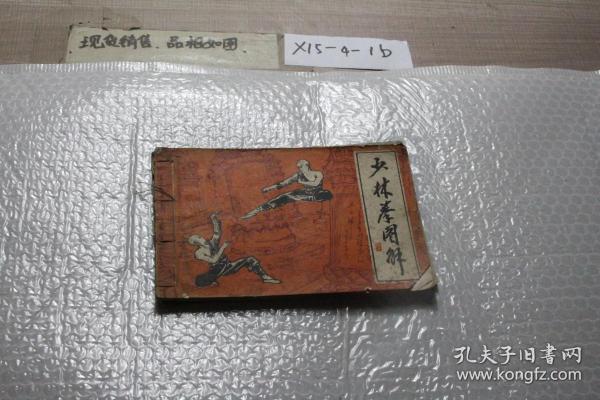 现货销售、品相如图.
X15-4-1b
少林拳图解
孔夫子旧书网
www.kongfz.com